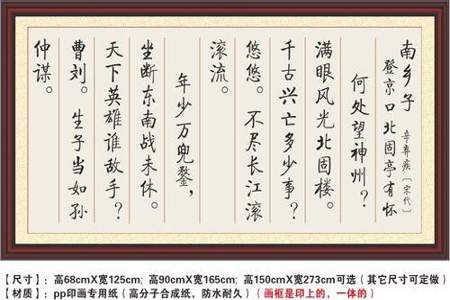 南乡子
登京口北固亭有怀
辛弃疾〔宋代〕
何处望神州？
满眼风光北固楼。
千古兴亡多少事？
悠悠。不尽长江滚
滚流。
年少万兜鍪，
坐断东南战未休。
天下英雄谁敌手？
曹刘。生子当如孙
仲谋。
【尺寸】：高68cmX宽125cm; 高90cmX宽165cm; 高150cmX宽273cm可选（其它尺寸可定做）
【材质】：pp印画专用纸（高分子合成纸，防水耐久）（画框是印上的，一体的）